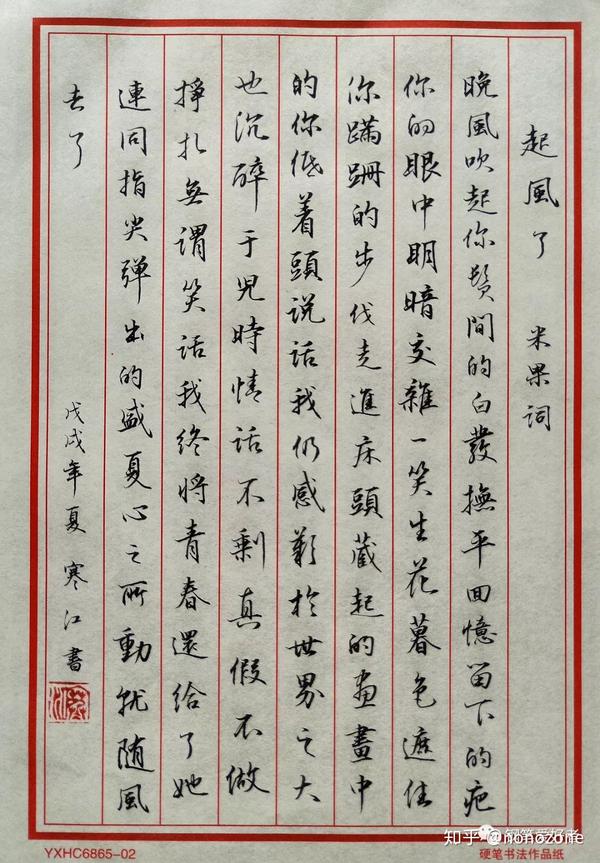 起風了 米果詞
晚風吹起你鬓間的白發撫平回憶留下的疤
你的眼中明暗交雜一笑生花暮色遮住
你蹣跚的步伐走進床頭藏起的畫畫中
的你低着頭説話我仍感歎於世界之大
也沉醉于兒時情話不剩真假不做
掙扎無謂笑話我終將青春還給了她
連同指尖彈出的盛夏心之所動就随風
去了
戊戌年夏 寒江書
YXHC6865-02
硬笔书法作品纸
知乎 @nonozone